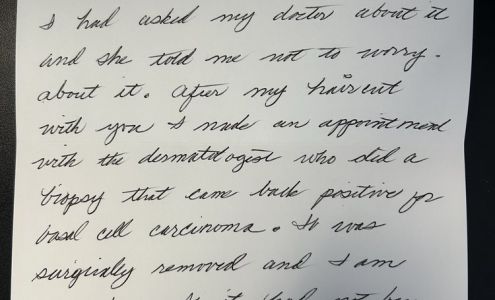 I had asked my doctor about it
and she told me not to worry.
about it. After my haircut
with you I made an appointment
with the dermatologist who did a
biopsy that came back positive for
basal cell carcinoma. It was
surgically removed and I am
it had not been